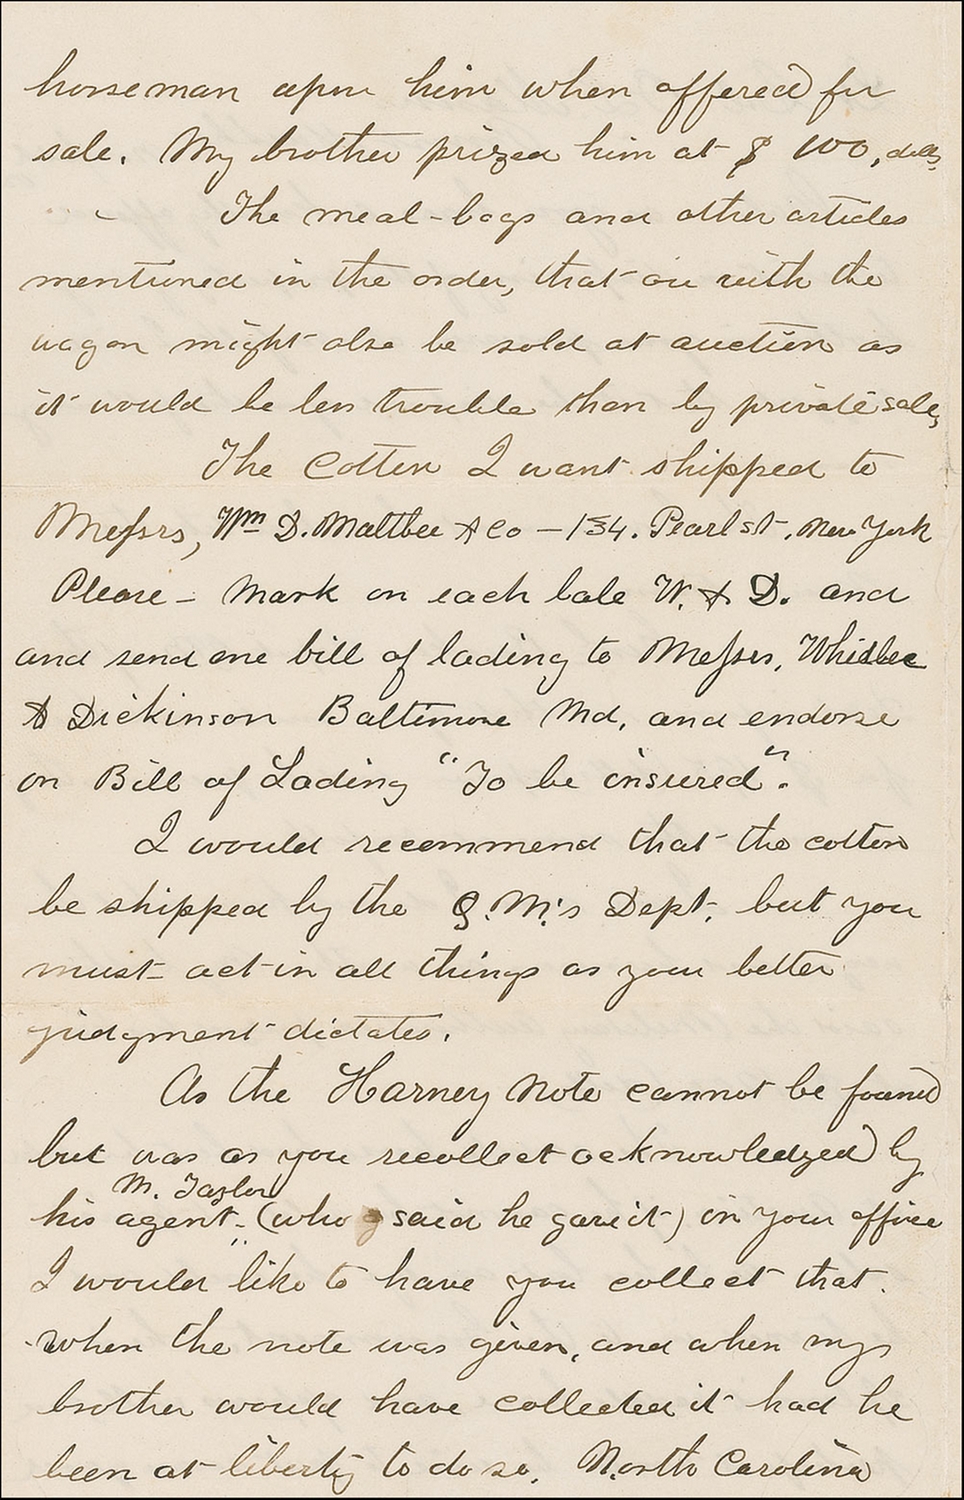 horseman upon him when offered for
sale. My brother prized him at $ 100, dolls,
The meal-bags and other articles
mentioned in the order, that are with the
wagon might also be sold at auction as
it would be less trouble than by private sale,
The Cotton I want shipped to
Messrs, Wm D. Maltbee & Co – 134. Pearl st. New York
Please – Mark on each bale W. & D. and
and send one bill of lading to Messrs, Whidbee
& Dickinson Baltimore Md, and endorse
on Bill of Lading "To be insured".
I would recommend that the cotton
be shipped by the Q. M.'s Dept. but you
must act in all things as your better
judgment dictates.
As the Harney Note cannot be found
but was as you recollect acknowledged by
M. Taylor
his agent – (who said he gave it) in your office
I would like to have you collect that.
when the note was given, and when my
brother would have collected it had he
been at liberty to do so. North Carolina